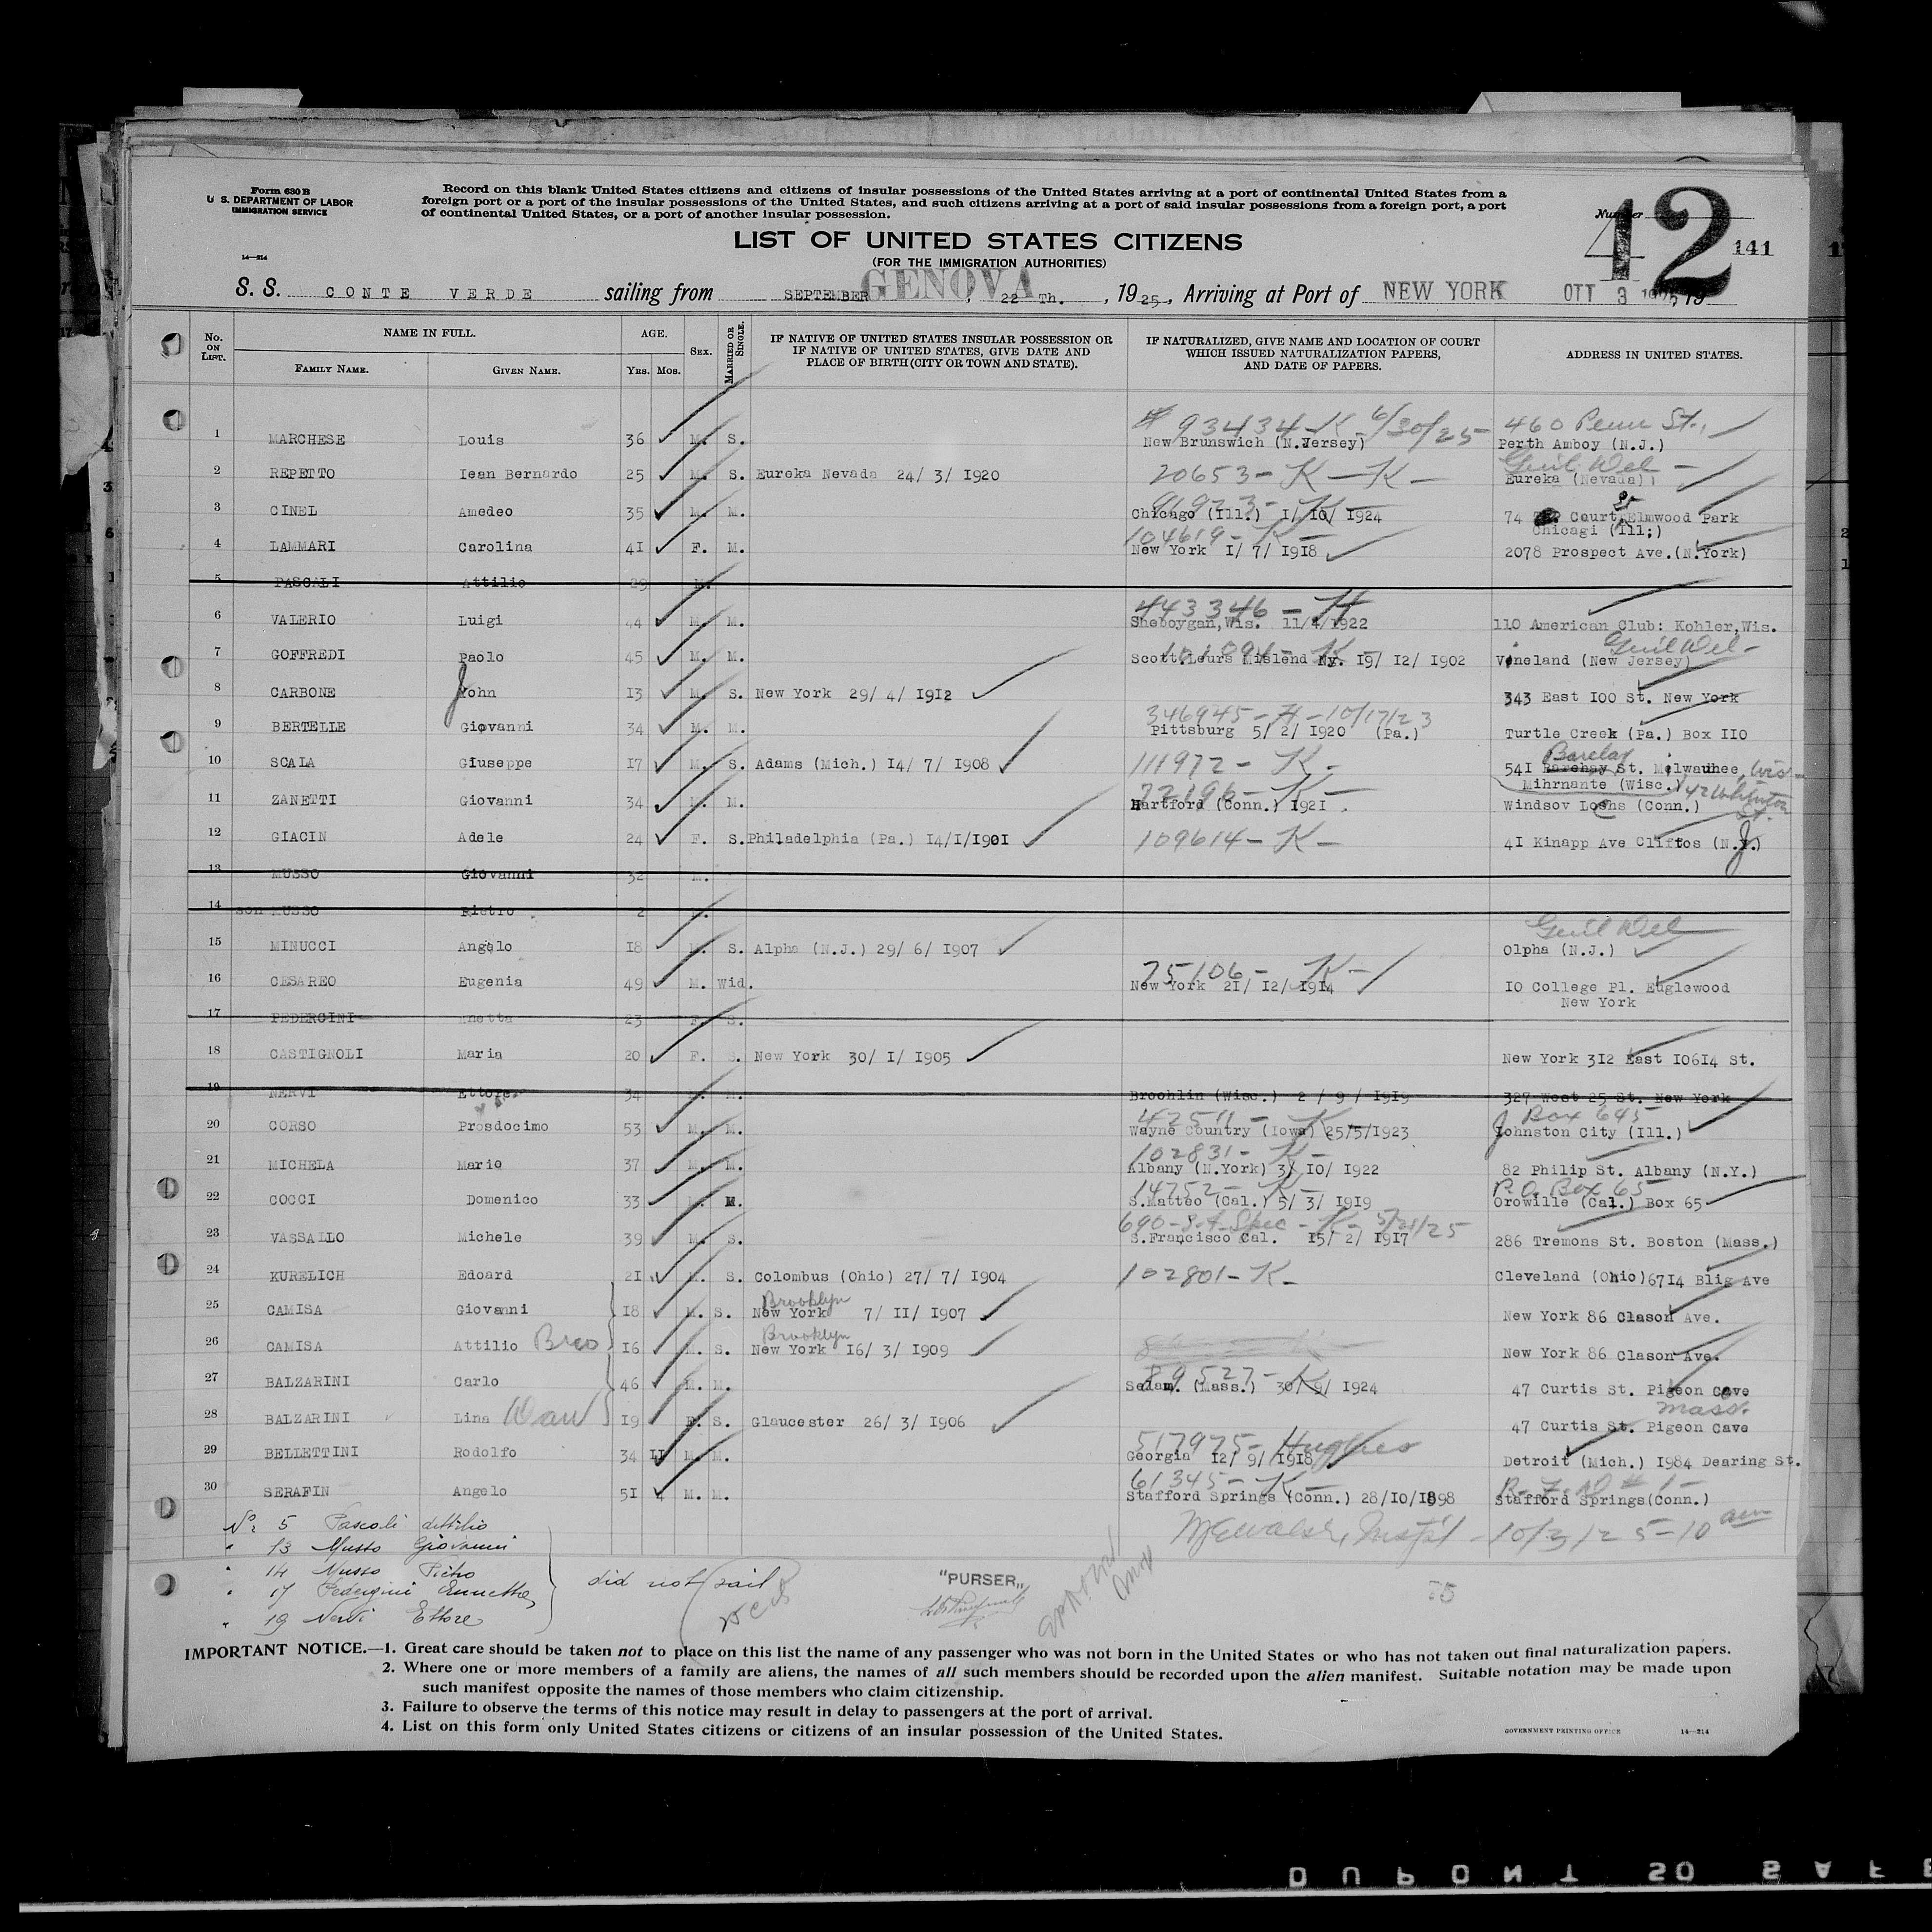 Form 630 B
U. S. DEPARTMENT OF LABOR
IMMIGRATION SERVICE
Record on this blank United States citizens and citizens of insular possessions of the United States arriving at a port of continental United States from a
foreign port or a port of the insular possessions of the United States, and such citizens arriving at a port of said insular possessions from a foreign port, a port
of continental United States, or a port of another insular possession.
Number 42 141
LIST OF UNITED STATES CITIZENS
(FOR THE IMMIGRATION AUTHORITIES)
14—214
S. S. CONTE VERDE sailing from GENOVA SEPTEMBER, 22 Th., 1925, Arriving at Port of NEW YORK OTT 3 1925, 19
No. ON LIST. NAME IN FULL. AGE. SEX. MARRIED OR SINGLE. IF NATIVE OF UNITED STATES INSULAR POSSESSION OR IF NATIVE OF UNITED STATES, GIVE DATE AND PLACE OF BIRTH (CITY OR TOWN AND STATE). IF NATURALIZED, GIVE NAME AND LOCATION OF COURT WHICH ISSUED NATURALIZATION PAPERS, AND DATE OF PAPERS. ADDRESS IN UNITED STATES.
FAMILY NAME. GIVEN NAME. YRS. MOS.
# 93434-K 6/30/25 460 Penn St.,
1 MARCHESE Louis 36 M. S. New Brunswich (N.Jersey) Perth Amboy (N.J.)
2 REPETTO Iean Bernardo 25 M. S. Eureka Nevada 24/ 3/ 1920 20653-K-K- Eureka (Nevada)
3 CINEL Amedeo 35 M. M. Chicago (Ill.) 1/ 10/ 1924 74 Court Elmwood Park
Chicagi (Ill;)
104619-K-
4 LAMMARI Carolina 41 F. M. New York 1/ 7/ 1918 2078 Prospect Ave.(N.York)
5 PASCALI Attilio 29 M.
443346-H
6 VALERIO Luigi 44 M. M. Sheboygan,Wis. 11/4/1922 110 American Club: Kohler,Wis.
7 GOFFREDI Paolo 45 M. M. 19/ 12/ 1902 Vineland (New Jersey)
8 CARBONE John 13 M. S. New York 29/ 4/ 1912 343 East 100 St. New York
346945-H-10/17/23
9 BERTELLE Giovanni 34 M. M. Pittsburg 5/ 2/ 1920 (Pa.) Turtle Creek (Pa.) Box 110
Barclay
10 SCALA Giuseppe 17 M. S. Adams (Mich.) 14/ 7/ 1908 111972-K- 541 St. Milwauhee, Wis-
Mihrnante (Wisc.)
72196-K-
11 ZANETTI Giovanni 34 M. M. Hartford (Conn.) 1921. Windsov Lochs (Conn.)
12 GIACIN Adele 24 F. S. Philadelphia (Pa.) 14/1/1901 109614-K- 41 Kinapp Ave Cliftos (N.J.)
13 MUSSO Giovanni 32 M.
14 son MUSSO Pietro 2
15 MINUCCI Angelo 18 M. S. Alpha (N.J.) 29/ 6/ 1907 Olpha (N.J.)
75106-K-
16 CESAREO Eugenia 49 M. Wid. New York 21/ 12/ 1914 10 College Pl. Euglewood
New York
17 PEDERCINI Anetta 23 F. S.
18 CASTIGNOLI Maria 20 F. S. New York 30/ 1/ 1905 New York 312 East 10614 St.
19 NERVI Ettore 34 M. M. Broohlin (Wisc.) 2 / 9 / 1919 327 West 25 St. New York
J Box 645
20 CORSO Prosdocimo 53 M. M. Wayne Country (Iowa) 25/5/1923 Iohnston City (Ill.)
102831-K-
21 MICHELA Mario 37 M. M. Albany (N.York) 3/ 10/ 1922 82 Philip St. Albany (N.Y.)
14752-K- P.O. Box 65
22 COCCI Domenico 33 M. M. S.Matteo (Cal.) 5/ 3/ 1919 Orowille (Cal.) Box 65
690-S.A. Spec-K- 5/21/25
23 VASSALLO Michele 39 M. S. S.Francisco Cal. 15/ 2/ 1917 286 Tremons St. Boston (Mass.)
24 KURELICH Edoard 21 M. S. Colombus (Ohio) 27/ 7/ 1904 102801-K- Cleveland (Ohio)6714 Blig Ave
Brooklyn
25 CAMISA Giovanni 18 M. S. New York 7/ 11/ 1907 New York 86 Clason Ave.
Brooklyn
26 CAMISA Attilio Bro 16 M. S. New York 16/ 3/ 1909 New York 86 Clason Ave.
89527-K
27 BALZARINI Carlo 46 M. M. Selam. (Mass.) 30/ 9/ 1924 47 Curtis St. Pigeon Cove
Mass.
28 BALZARINI Lina Dau 19 F. S. Glaucester 26/ 3/ 1906 47 Curtis St. Pigeon Cave
517975-Hughes
29 BELLETTINI Rodolfo 34 11 M. M. Georgia 12/ 9/ 1918 Detroit (Mich.) 1984 Dearing St.
61345-K- R.F.D # 1-
30 SERAFIN Angelo 51 4 M. M. Stafford Springs (Conn.) 28/10/1898 Stafford Springs(Conn.)
10/3/25-10 am
Nr 5 Pascali Attilio
" 13 Musso Giovanni
" 14 Musso Pietro
" 17 Pedergini Annetta
" 19 Nervi Ettore
did not sail
"PURSER„
IMPORTANT NOTICE.—1. Great care should be taken not to place on this list the name of any passenger who was not born in the United States or who has not taken out final naturalization papers.
2. Where one or more members of a family are aliens, the names of all such members should be recorded upon the alien manifest. Suitable notation may be made upon
such manifest opposite the names of those members who claim citizenship.
3. Failure to observe the terms of this notice may result in delay to passengers at the port of arrival.
4. List on this form only United States citizens or citizens of an insular possession of the United States.
GOVERNMENT PRINTING OFFICE 14—214
DUPONT SO SAFE